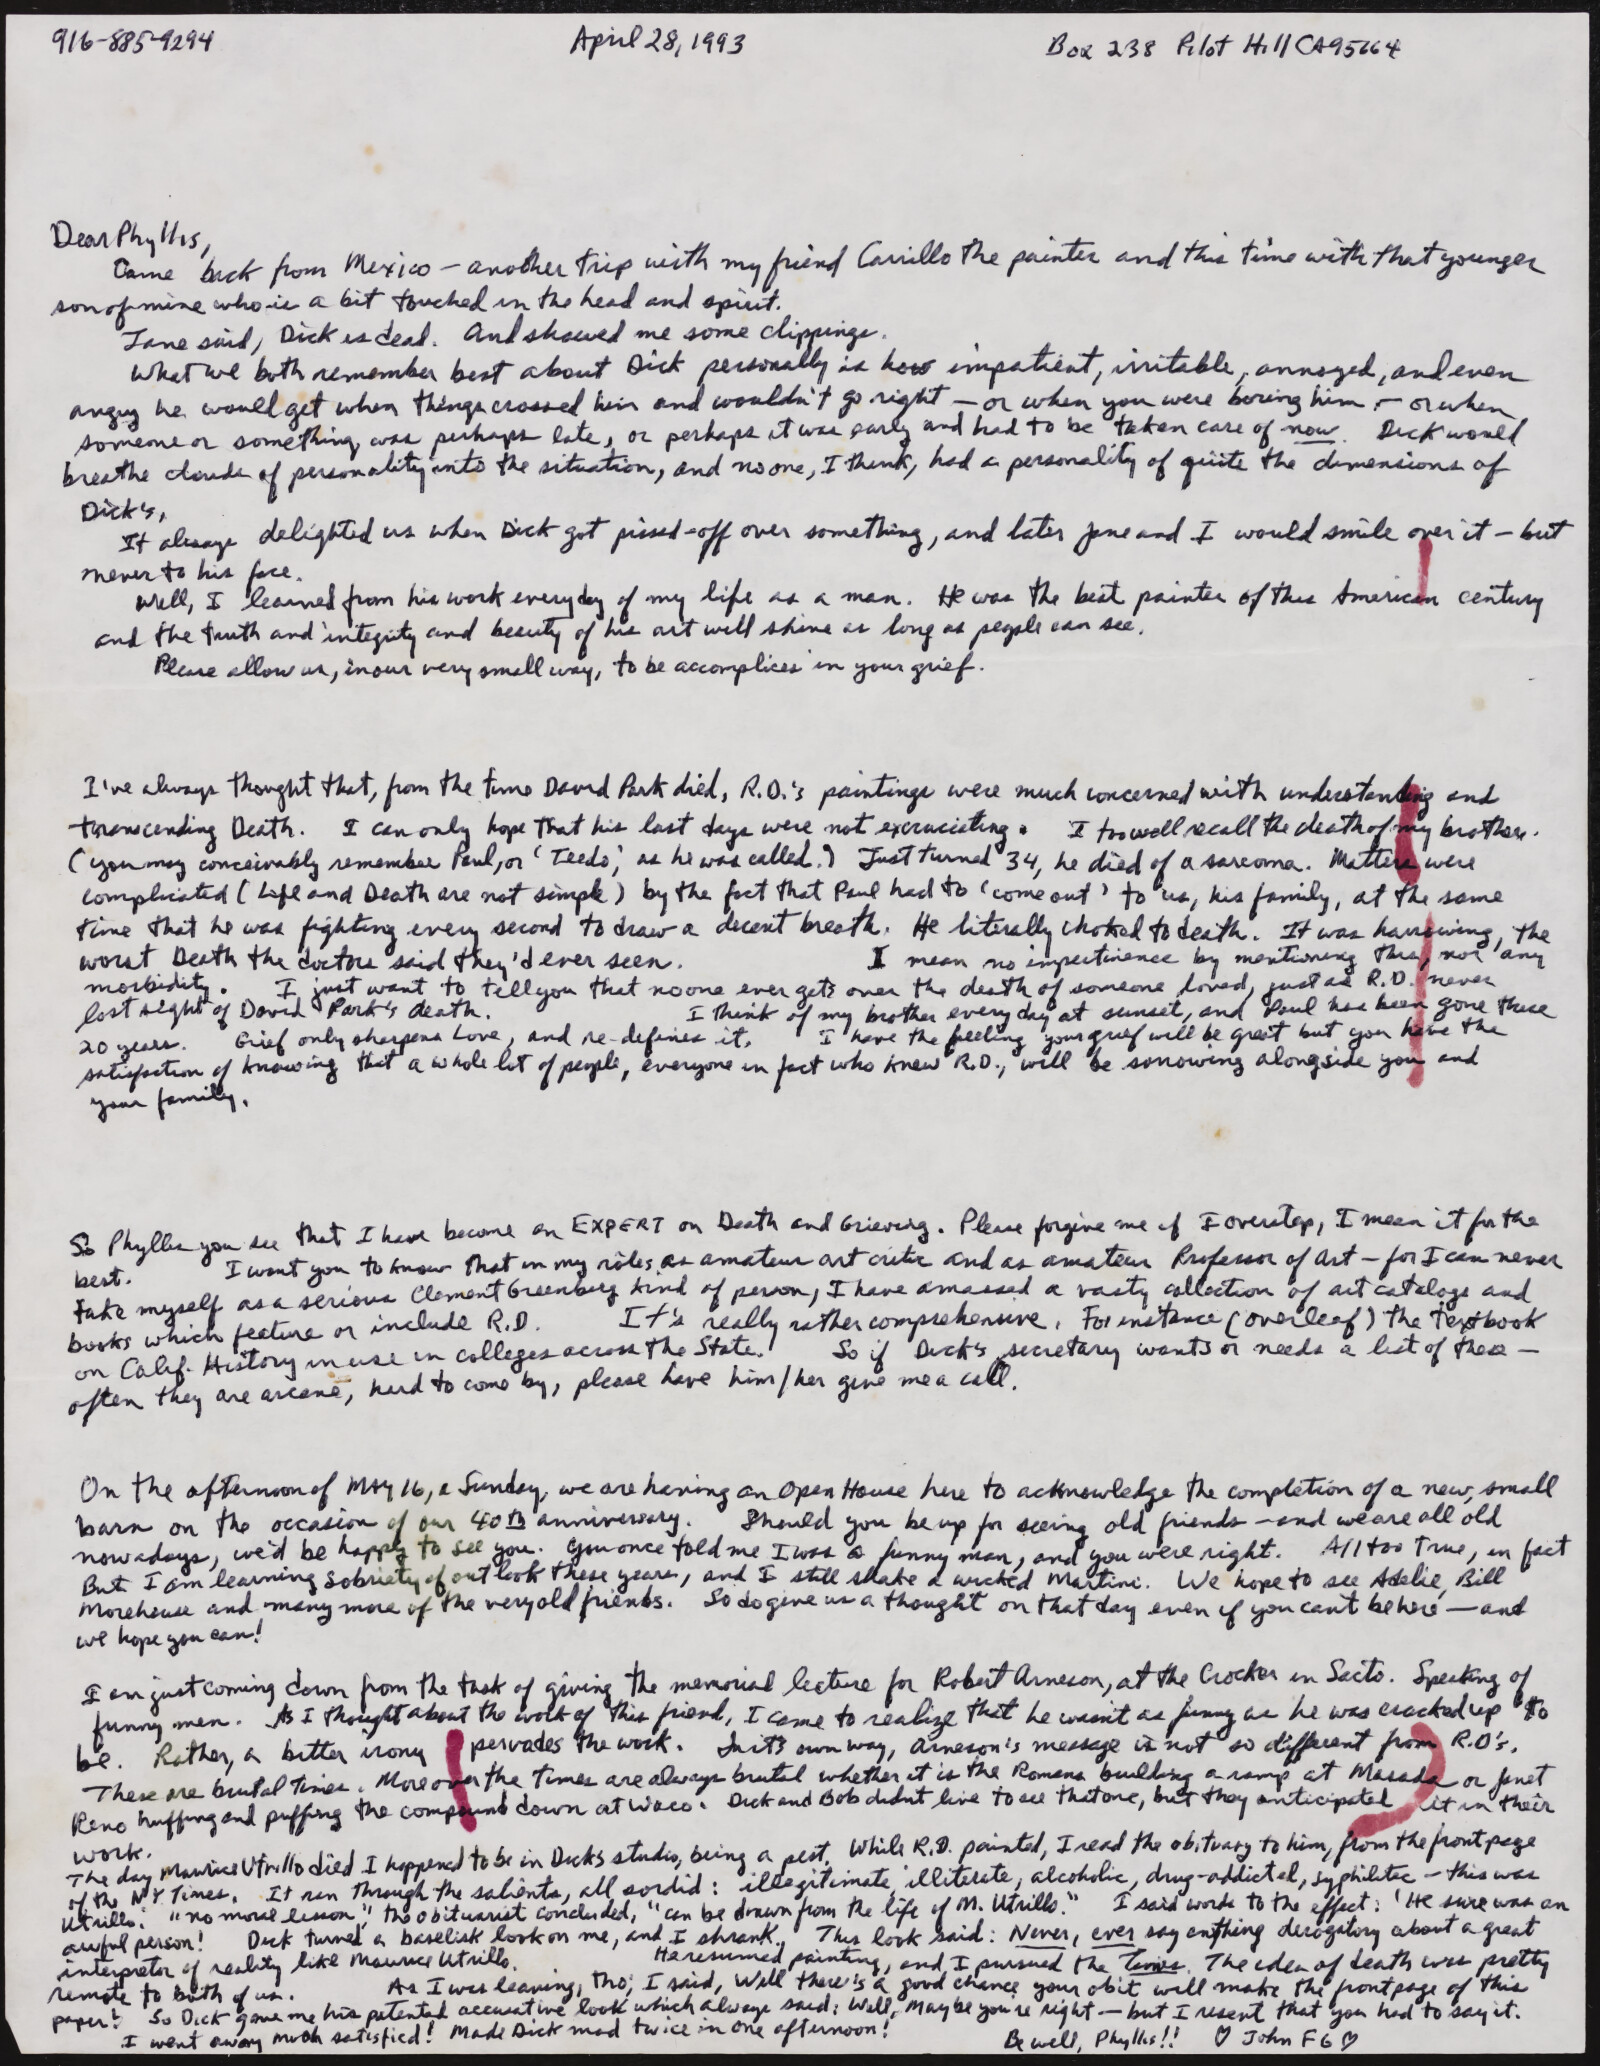 916-885-9294 April 28, 1993 Box 238 Pilot Hill CA 95664
Dear Phyllis,
Came back from Mexico — another trip with my friend Carrillo the painter and this time with that younger
son of mine who is a bit touched in the head and spirit.
Jane said, Dick is dead. And showed me some clippings.
What we both remember best about Dick personally is how impatient, irritable, annoyed, and even
angry he would get when things crossed him and wouldn't go right — or when you were boring him — or when
someone or something was perhaps late, or perhaps it was early and had to be taken care of now. Dick would
breathe clouds of personality into the situation, and no one, I think, had a personality of quite the dimensions of
Dick's.
It always delighted us when Dick got pissed-off over something, and later Jane and I would smile over it — but
never to his face.
Well, I learned from his work everyday of my life as a man. He was the best painter of this American century
and the truth and integrity and beauty of his art will shine as long as people can see.
Please allow us, in our very small way, to be accomplices in your grief.
I've always thought that, from the time David Park died, R.D.'s paintings were much concerned with understanding and
transcending Death. I can only hope that his last days were not excruciating. I too well recall the death of my brother.
(you may conceivably remember Paul, or 'Teedo', as he was called.) Just turned 34, he died of a sarcoma. Matters were
complicated (Life and Death are not simple) by the fact that Paul had to 'come out' to us, his family, at the same
time that he was fighting every second to draw a decent breath. He literally choked to death. It was harrowing, the
worst Death the doctors said they'd ever seen. I mean no impertinence by mentioning this, nor any
morbidity. I just want to tell you that no one ever gets over the death of someone loved, just as R.D. never
lost sight of David Park's death. I think of my brother every day at sunset, and Paul has been gone these
20 years. Grief only sharpens Love, and re-defines it. I have the feeling your grief will be great but you have the
satisfaction of knowing that a whole lot of people, everyone in fact who knew R.D., will be sorrowing alongside you and
your family.
So Phyllis you see that I have become an EXPERT on Death and Grieving. Please forgive me if I overstep, I mean it for the
best. I want you to know that in my rôles as amateur art critic and as amateur Professor of Art — for I can never
take myself as a serious Clement Greenberg kind of person, I have amassed a vasty collection of art catalogs and
books which feature or include R.D. It's really rather comprehensive. For instance (overleaf) the textbook
on Calif. History in use in colleges across the State. So if Dick's secretary wants or needs a list of these —
often they are arcane, hard to come by, please have him/her give me a call.
On the afternoon of May 16, a Sunday, we are having an Open House here to acknowledge the completion of a new, small
barn on the occasion of our 40th anniversary. Should you be up for seeing old friends — and we are all old
nowadays, we'd be happy to see you. You once told me I was a funny man, and you were right. All too true, in fact
But I am learning sobriety of outlook these years, and I still shake a wicked Martini. We hope to see Adelie, Bill
Morehouse and many more of the very old friends. So do give us a thought on that day even if you can't be here — and
we hope you can!
I am just coming down from the task of giving the memorial lecture for Robert Arneson, at the Crocker in Sacto. Speaking of
funny men. As I thought about the work of this friend, I came to realize that he wasn't as funny as he was cracked up to
be. Rather, a bitter irony pervades the work. In its own way, Arneson's message is not so different from R.D's.
These are brutal times. Moreover the times are always brutal whether it is the Romans building a ramp at Masada or Janet
Reno huffing and puffing the compound down at Waco. Dick and Bob didn't live to see that one, but they anticipated it in their
work.
The day Maurice Utrillo died I happened to be in Dick's studio, being a pest. While R.D. painted, I read the obituary to him, from the front page
of the NY Times. It ran through the salients, all sordid: illegitimate, illiterate, alcoholic, drug-addicted, syphilitic — this was
Utrillo. "no moral lesson", the obituarist concluded, "can be drawn from the life of M. Utrillo." I said words to the effect: 'He sure was an
awful person! Dick turned a baselisk look on me, and I shrank. This look said: Never, ever say anything derogatory about a great
interpreter of reality like Maurice Utrillo. He resumed painting, and I pursued the Times. The idea of death was pretty
remote to both of us. As I was leaving, tho', I said, Well there's a good chance your obit will make the front page of this
paper! So Dick gave me his patented accusative look which always said: Well, maybe you're right — but I resent that you had to say it.
I went away much satisfied! Made Dick mad twice in one afternoon! Be well, Phyllis!! ♡ John F G ♡